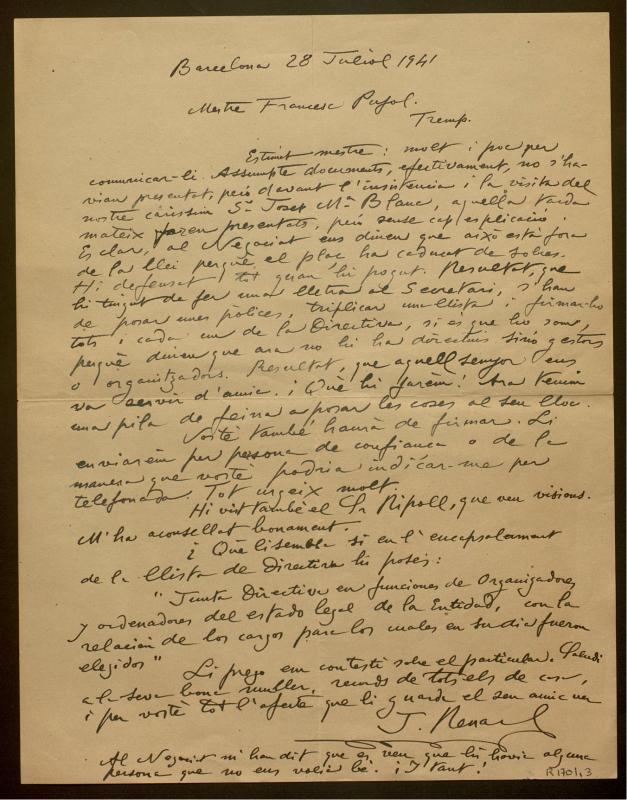 Barcelona 28 Juliol 1941
Mestre Francesc Pujol.
Tremp.
Estimat mestre: molt i poc per
comunicar-li. Assumpte documents, efectivament, no s'ha-
vian presentat, però davant l'insistencia i la visita del
nostre caríssim Sr. Josep Mª Blanc, aquella tarda
mateix foren presentats, però sense cap esplicació.
Es clar, al Negociat ens diuen que això està fora
de la llei perquè el plaç ha caducat de sobres.
Hi defensat tot quan hi pogut. Resultat, que
hi tingut de fer una lletra al Secretari, s'han
de posar unes pòlices, triplicar una llista i firmar-ho
tots i cada un de la Directiva, si es que ho som,
perquè diuen que ara no hi ha directius sinó gestors
o organitzadors. Resultat, que aquell senyor ens
va servir d'amic. ¡Què hi farèm! Ara tenim
una pila de feina a posar les coses al seu lloc.
Vostè també haurà de firmar. Li
enviarèm per persona de confiança o de la
manera que vostè podria indicar-me per
telefonada. Tot urgeix molt.
Hi vist també el Sr Ripoll, que veu visions.
M'ha aconsellat bonament.
¿Què li sembla si en l'encapsalament
de la llista de Directiva hi posés:
"Junta Directiva en funciones de Organizadores
y ordenadores del estado legal de la Entidad, con la
relación de los cargos para los cuales en su dia fueron
elegidos" Li prego em contesti sobre el particular. Saludi
a la seva bona muller, records de tots els de casa,
i per vostè tot l'afecte que li guarda el seu amic
J. Renart
Al Negociat m'han dit que es veu que hi havia alguna
persona que no ens volia bé. ¡I tant!
R 170/13